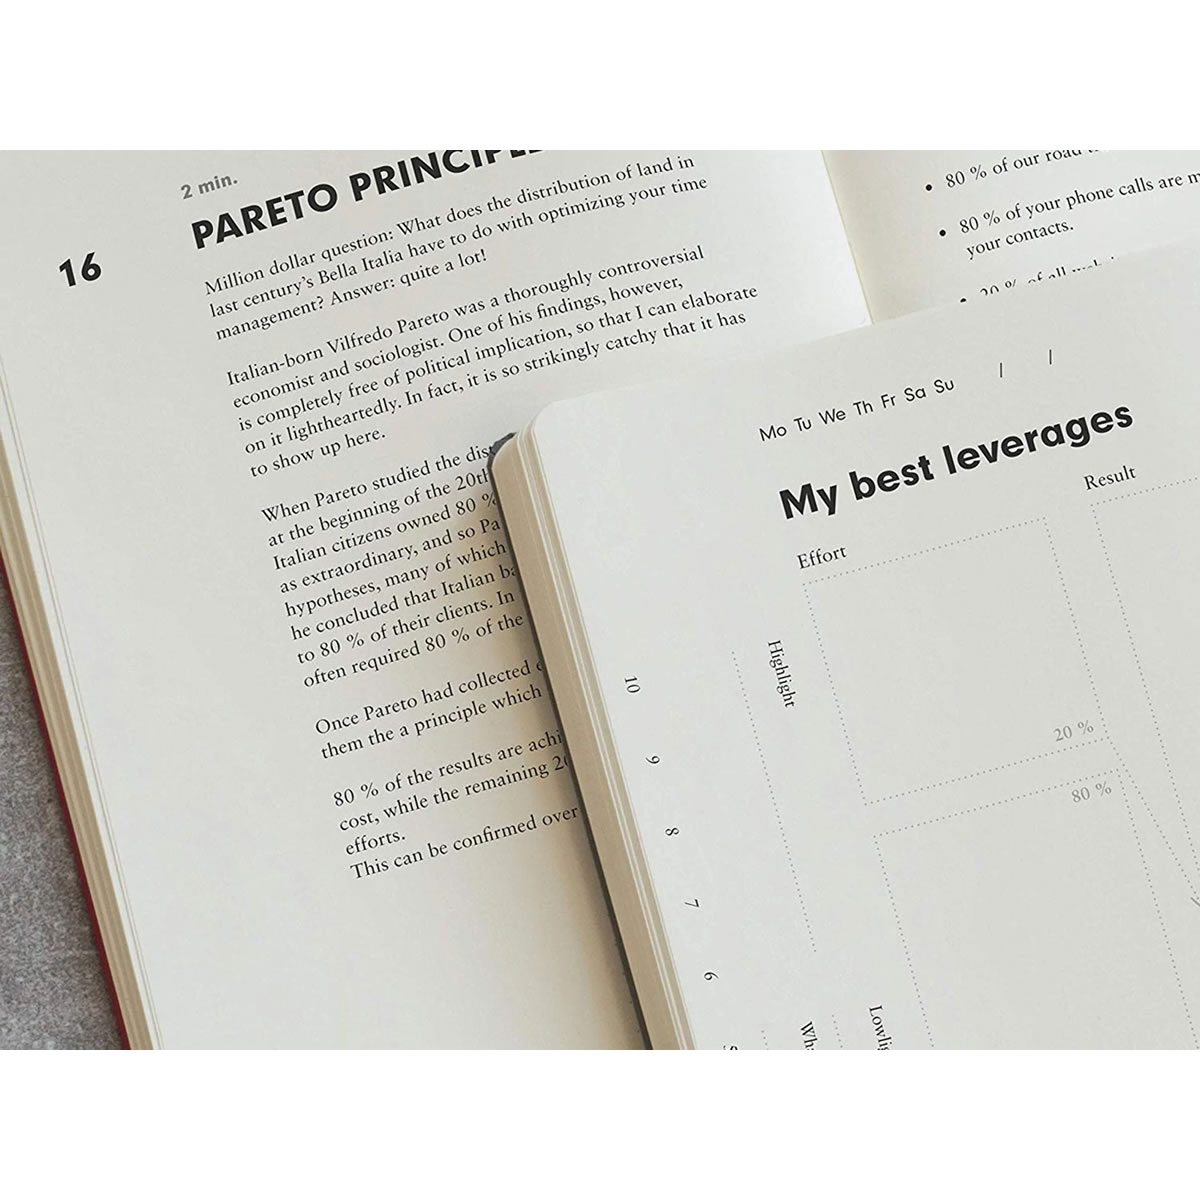 2 min.
PARETO PRINCIPLE
16
Million dollar question: What does the distribution of land in
last century's Bella Italia have to do with optimizing your time
management? Answer: quite a lot!
Italian-born Vilfredo Pareto was a thoroughly controversial
economist and sociologist. One of his findings, however,
is completely free of political implication, so that I can elaborate
on it lightheartedly. In fact, it is so strikingly catchy that it has
to show up here.
When Pareto studied the
at the beginning of the 20th
Italian citizens owned 80 %
as extraordinary, and so
hypotheses, many of which
he concluded that Italian
to 80 % of their clients. In
often required 80 % of the
Once Pareto had collected
them the a principle which
80 % of the results are
cost, while the remaining
efforts.
This can be confirmed over
• 80 % of our road
• 80 % of your phone calls are
your contacts.
• 20 % of all
Mo Tu We Th Fr Sa Su / /
My best leverages
Effort
Result
Highlight
20 %
80 %
10
9
8
7
6